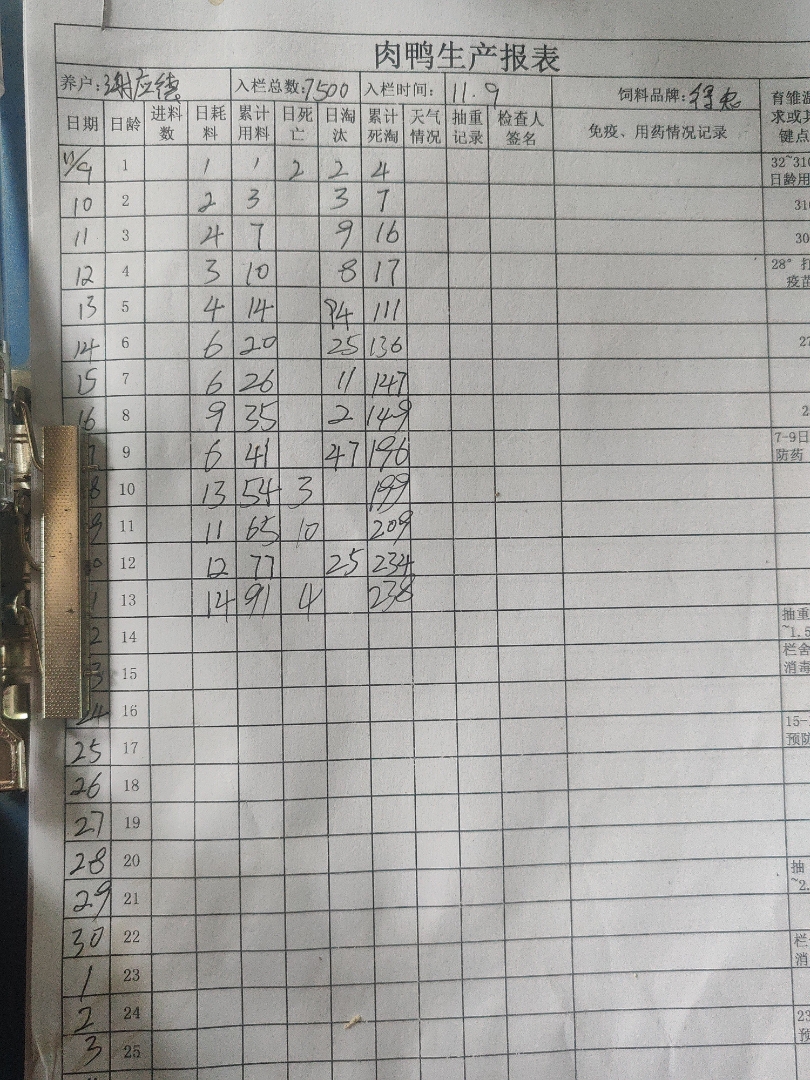 肉鸭生产报表
养户: 谢应德 入栏总数: 7500 入栏时间: 11.9 饲料品牌: 育雏温
日期 日龄 进料数 日耗料 累计用料 日死亡 日淘汰 累计死淘 天气情况 抽重记录 检查人签名 免疫、用药情况记录 求或其 键点
11/9 1 1 1 2 2 4 32~31 日龄用
10 2 2 3 3 7 31
11 3 4 7 9 16 30
12 4 3 10 8 17 28° 打 疫苗
13 5 4 14 94 111
14 6 6 20 25 136 27
15 7 6 26 11 147
16 8 9 35 2 149 2
7 9 6 41 47 196 7-9日 防药
8 10 13 54 3 199
9 11 11 65 10 209
0 12 12 77 25 234
1 13 14 91 4 238
2 14 抽重 ~1.5
3 15 栏舍 消毒
24 16
25 17 15- 预防
26 18
27 19
28 20 抽
29 21 ~2.
30 22 栏
1 23 消
2 24
3 25 23 预